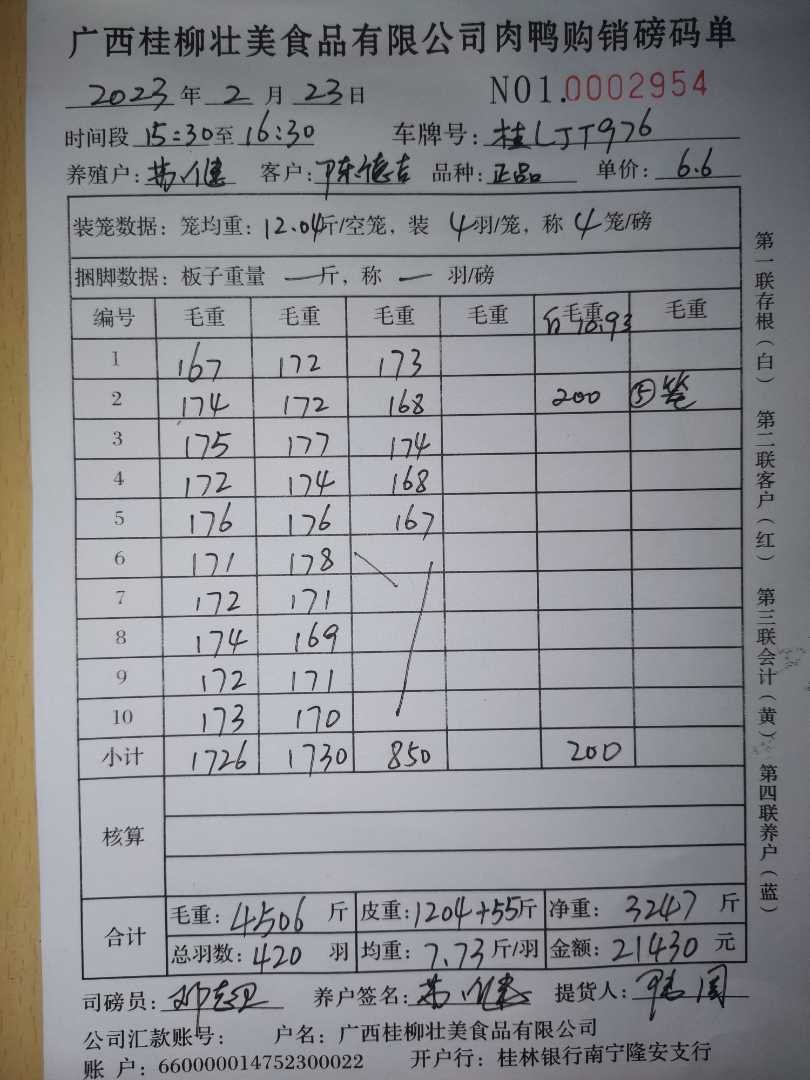 广西桂柳壮美食品有限公司肉鸭购销磅码单
2023年2月23日 NO1.0002954
时间段 15:30至16:30 车牌号: 桂LJT976
养殖户: 客户: 陈德吉 品种: 正品 单价: 6.6
装笼数据: 笼均重: 12.04斤/空笼, 装 4羽/笼, 称 4笼/磅
捆脚数据: 板子重量 一斤, 称 一 羽/磅
编号 毛重 毛重 毛重 毛重 毛重 毛重
10.93
1 167 172 173
2 174 172 168 200 ⑤笼
3 175 177 174
4 172 174 168
5 176 176 167
6 171 178
7 172 171
8 174 169
9 172 171
10 173 170
小计 1726 1730 850 200
核算
合计
毛重: 4506 斤 皮重: 1204+55斤 净重: 3247 斤
总羽数: 420 羽 均重: 7.73斤/羽 金额: 21430 元
司磅员: 养户签名: 提货人:
公司汇款账号: 户名: 广西桂柳壮美食品有限公司
账 户: 660000014752300022 开户行: 桂林银行南宁隆安支行
第一联存根(白) 第二联客户(红) 第三联会计(黄) 第四联养户(蓝)